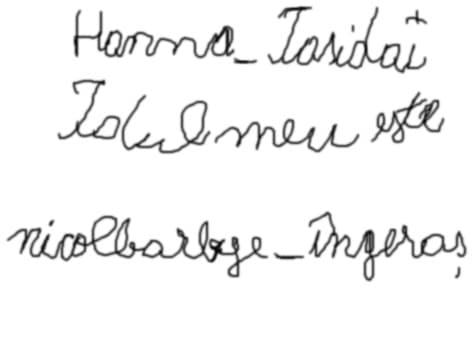 Hanna_Iasidai
Idul meu este
nicolbarbye_îngeraș